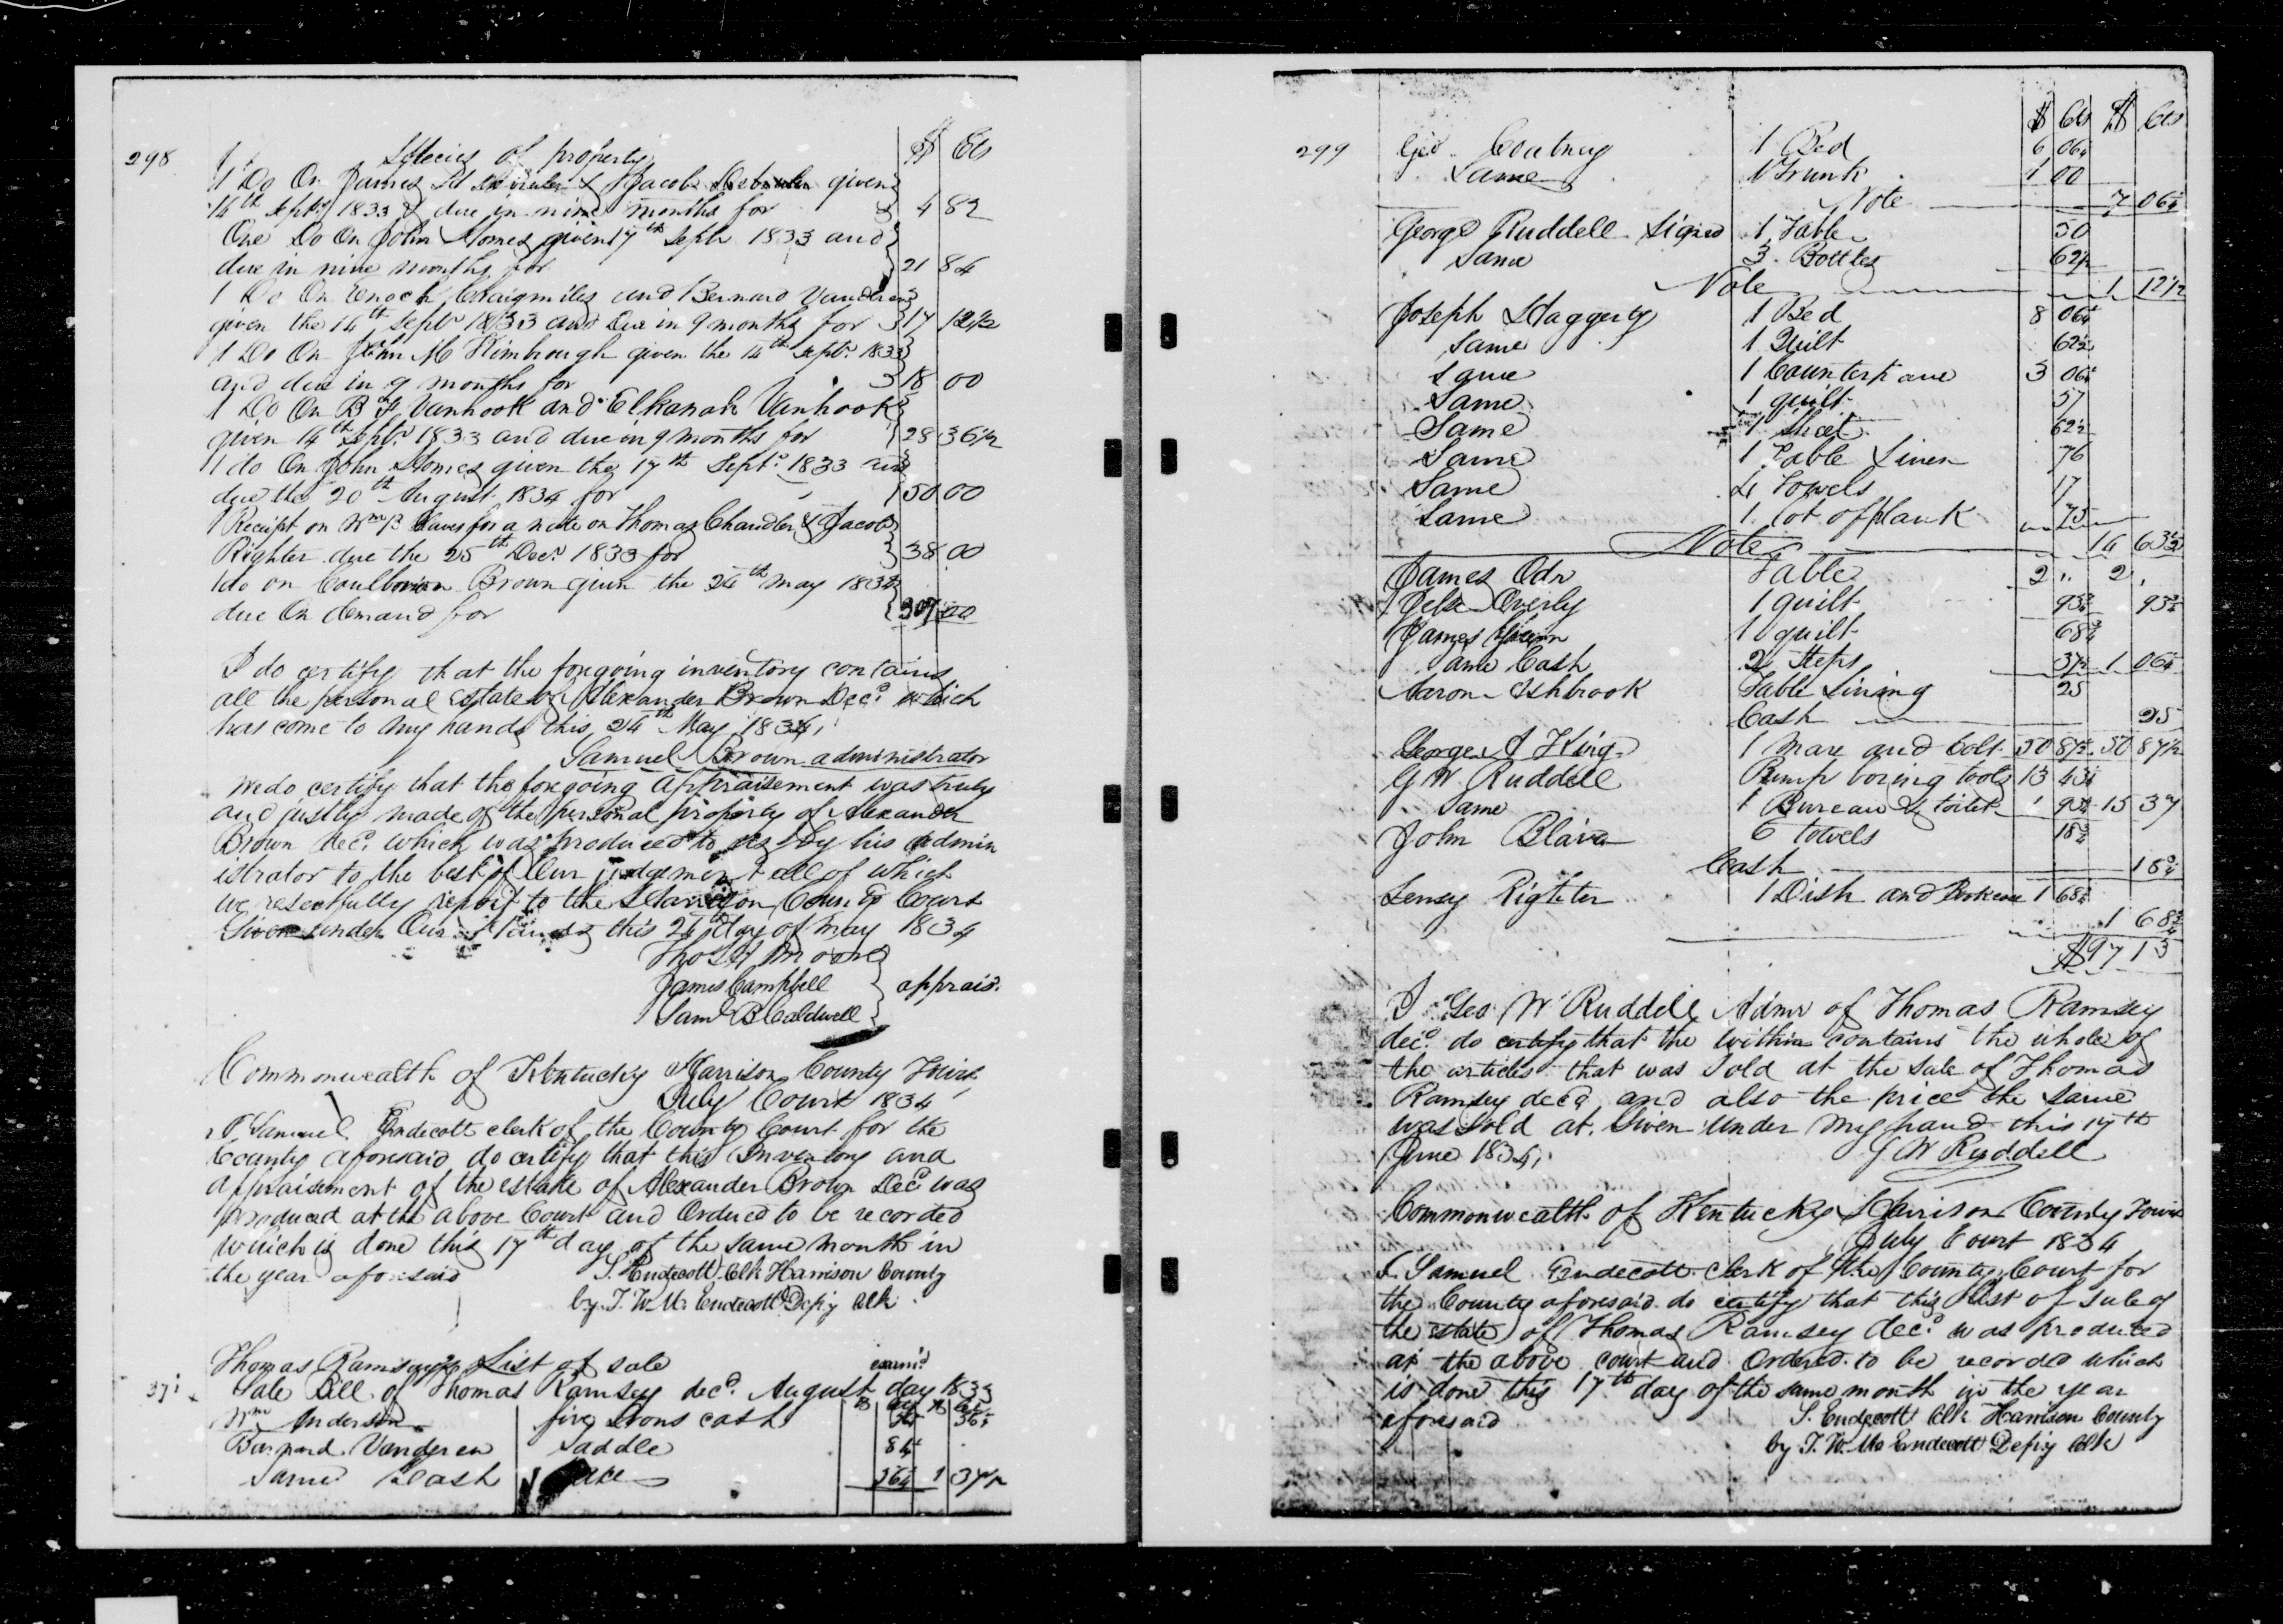 298
Species of property $ Cts
1 Do On James & Jacob given
14th Septr 1833 & due in nine months for 4 82
One Do On John Homes given 17th Septr 1833 and
due in nine months for 21 84
1 Do On Enoch Craigmiles and Bernard Vandren
given the 14th Septr 1833 and Due in 9 months for 17 12 1/2
1 Do On John M Kimbrough given the 14th Septr 1833
and due in 9 months for 18 00
1 Do On B F Vanhook and Elkanah Vanhook
given 14th Septr 1833 and due in 9 months for 28 36 1/2
1 do On John Homes given the 17th Septr 1833 and
due the 20th August 1834 for 150 00
1 Receipt on Wm B for a note on Thomas Chandler & Jacob
Righter due the 25th Decr 1833 for 38 00
1 do on Brown given the 24th May 1834
due On demand for 307 00
I do certify that the foregoing inventory contains
all the personal Estate of Alexander Brown Decd which
has come to my hands this 24th May 1834
Samuel Brown administrator
We do certify that the foregoing appraisement was truly
and justly made of the personal property of Alexander
Brown decd which was produced to us by his admin
istrator to the best of Our judgement all of which
we respectfully report to the Harrison County Court
Given under Our Hands this 24th day of May 1834
Thos H Moore
James Campbell } apprais.
Saml B Caldwell
Commonwealth of Kentucky Harrison County Towit
July Court 1834
I Samuel Endecott clerk of the County Court for the
County aforesaid do certify that this Inventory and
appraisement of the estate of Alexander Brown Decd was
produced at the above Court and Ordered to be recorded
which is done this 17th day of the same month in
the year aforesaid S. Endecott Clk Harrison County
by T. W. Mc Endecott Depy Clk
Thomas Ramsey List of sale examd
Sale Bill of Thomas Ramsey decd August day 1833
Wm Anderson fire Irons cash 36 1/4 36 1/4
Barnard Vandren Saddle 81 1/4
Same Cash 56 1/4 1 37 1/2
299
$ Cts $ Cts
Geo. Coutney 1 Bed 6 06 1/4
Same 1 Trunk 1 00
Note 7 06 1/4
George Ruddell Signed 1 Table 50
Same 3 Bottles 62 1/2
Note 1 12 1/2
Joseph Haggerty 1 Bed 8 06 1/4
Same 1 Quilt 62 1/2
Same 1 Counterpane 3 06 1/4
Same 1 quilt 57
Same 1 Sheet 62 1/2
Same 1 Table Linen 76
Same 4 Towels 17
Same 1 lot of plank 75
Note 14 63 1/2
James Odr Table 2 " 2 "
Overly 1 quilt 93 3/4 93 3/4
James 1 quilt 68 3/4
Same Cash 2 Steps 37 1/2 1 06 1/4
Aaron Ashbrook Table Lining 25
Cash 25
George A King 1 Mare and Colt 50 87 1/2 50 87 1/2
G W Ruddell Pump boring tools 13 43 3/4
Same 1 Bureau & toilet 1 93 3/4 15 37
John Blair 6 towels 18 3/4
Cash 18 3/4
Righter 1 Dish and 1 68 3/4
1 68 3/4
$97 13
I Geo W Ruddell Admr of Thomas Ramsey
decd do certify that the within contains the whole of
the articles that was sold at the sale of Thomas
Ramsey decd and also the price the same
was sold at. Given under my hand this 17th
June 1834. G W Ruddell
Commonwealth of Kentucky Harrison County Towit
July Court 1834
I Samuel Endecott clerk of the County Court for
the County aforesaid do certify that this List of Sale of
the estate of Thomas Ramsey decd was produced
at the above court and Ordered to be recorded which
is done this 17th day of the same month in the year
aforesaid S. Endecott Clk Harrison County
by T. W. Mc Endecott Depy Clk